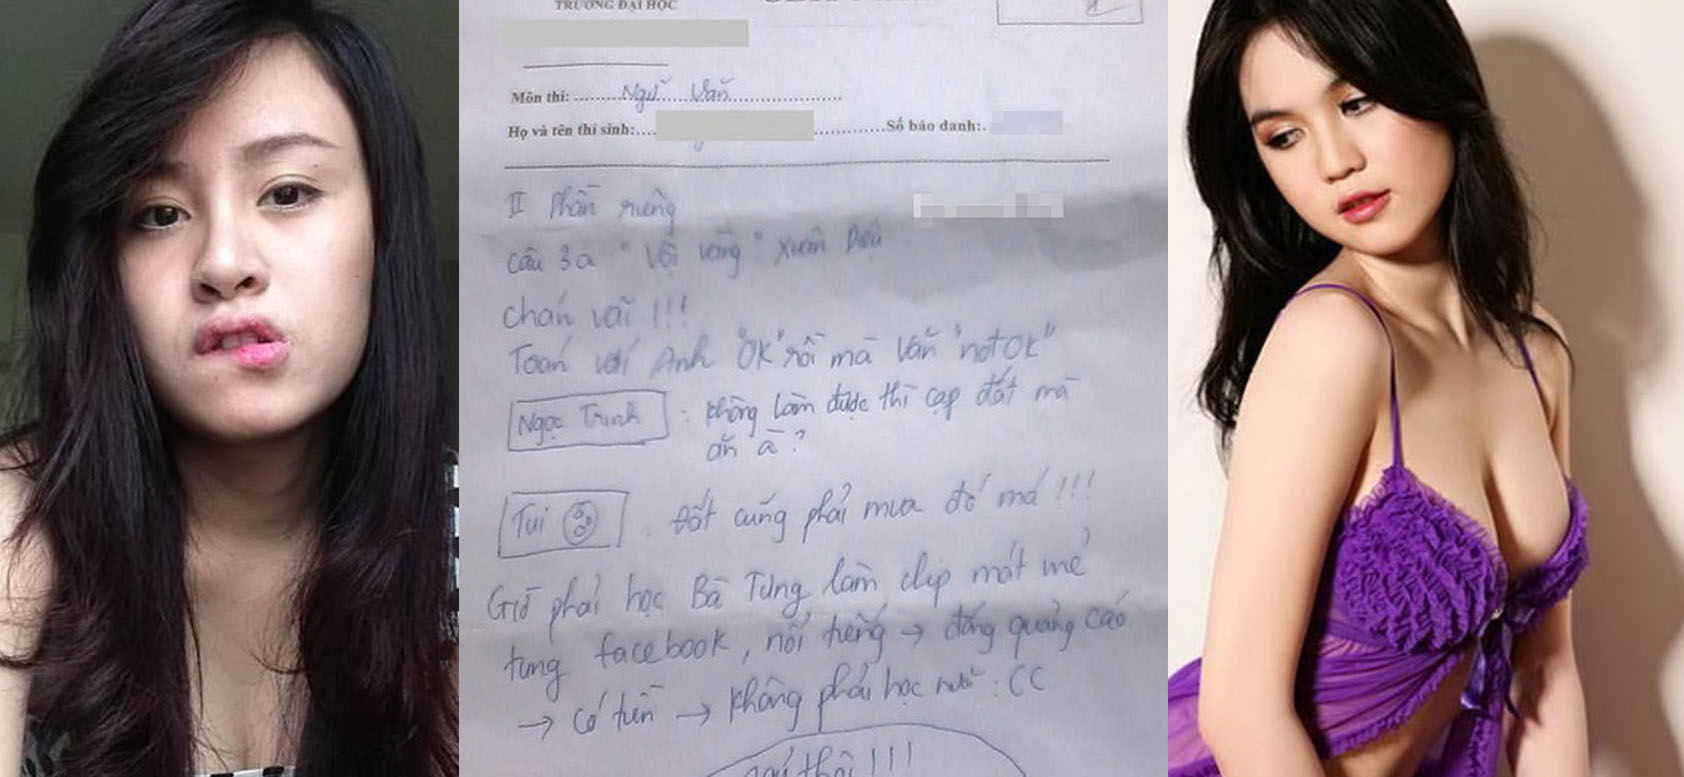 TRƯỜNG ĐẠI HỌC
Môn thi: Ngữ Văn
Họ và tên thí sinh: Số báo danh:
II Phần riêng
Câu 3a "Vội vàng" Xuân Diệu
Chán vãi !!!
Toán với Anh "OK" rồi mà Văn "not OK"
Ngọc Trinh : Không làm được thì cạp đất mà
ăn à ?
Tui : Đất cũng phải mua đó má !!!
Giờ phải học Bà Tưng làm clip mát mẻ
tung facebook, nổi tiếng → đóng quảng cáo
→ có tiền → không phải học nữa : CC
thôi !!!